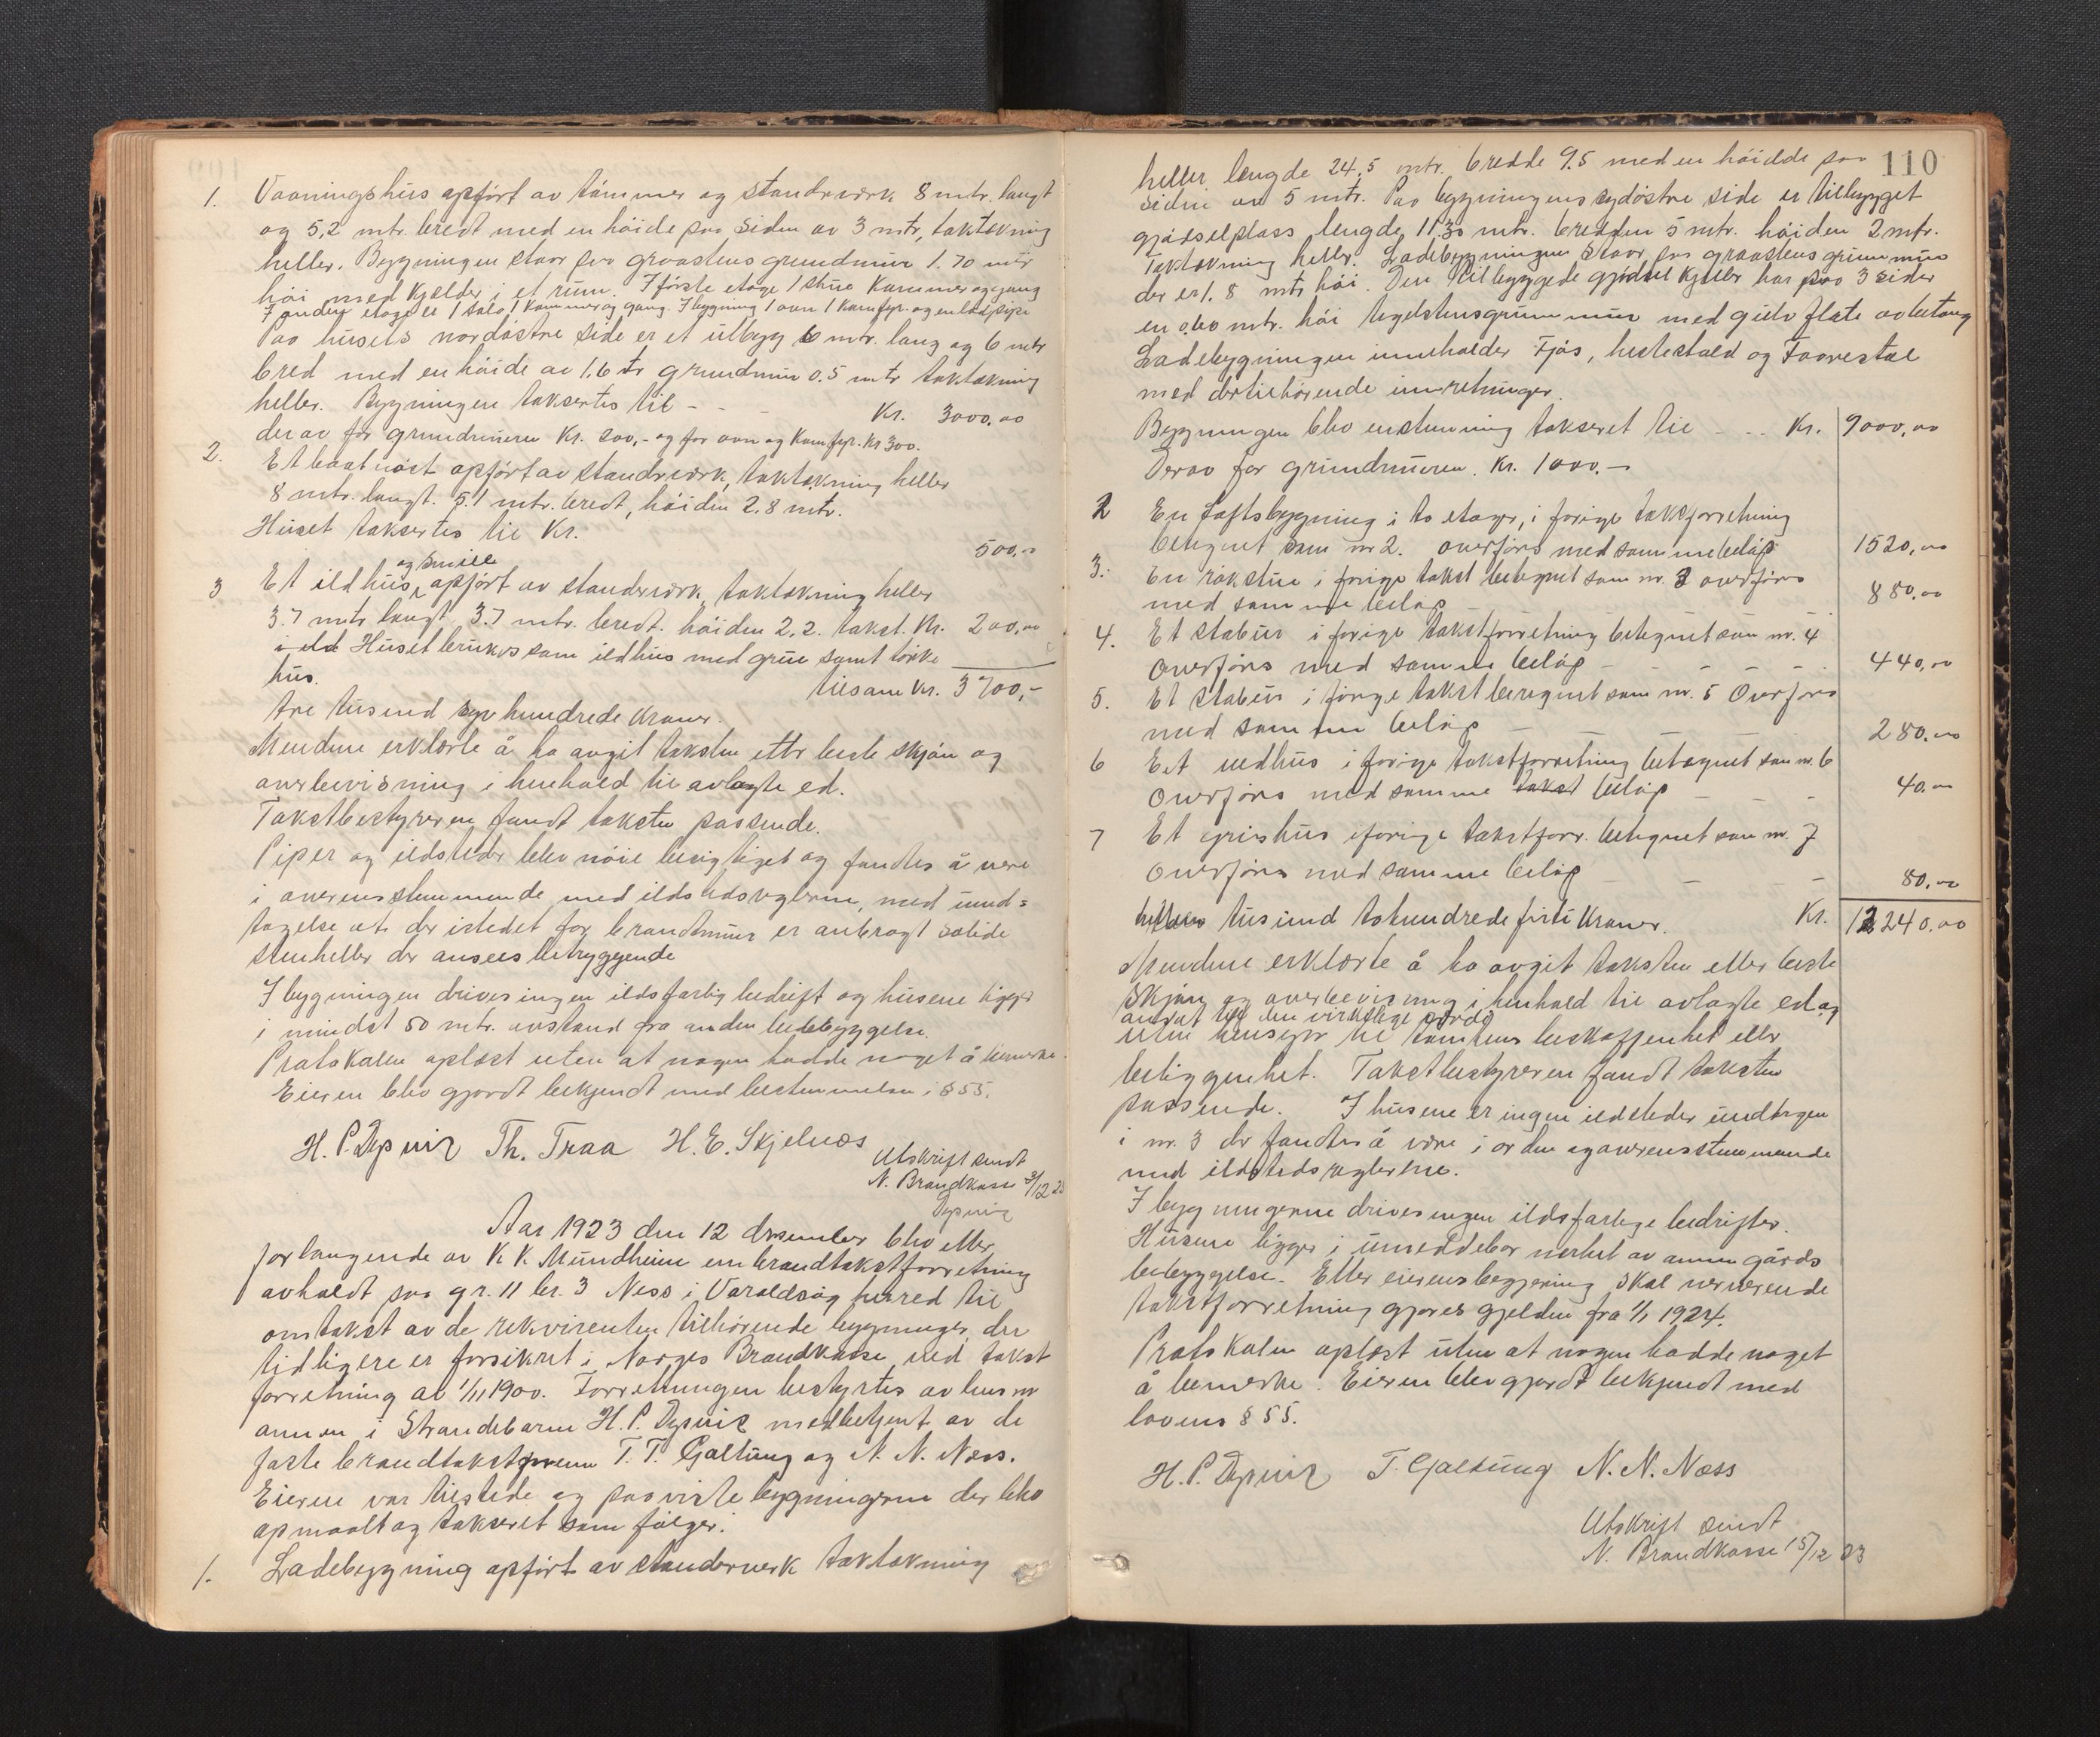 1. Vaaningshus opført av tømmer og standerværk 8 mtr. langt
og 5,2 mtr. bredt med en høide paa siden av 3 mtr, taktækning
heller. Bygningen staar paa graastens grundmur 1.70 mtr
høi med kjelder i et rum. I første etage 1 stue kammer og gang
I anden etage er 1 sal 1 kammer og gang. I bygning 1 ovn 1 komfyr og en pipe
Paa husets nordøstre side er et utbygg 6 mtr. lang og 6 mtr
bred med en høide av 1.6 grundmur 0.5 mtr taktækning
heller. Bygningen taksertes til - - - Kr. 3000,00
derav for grundmuren Kr. 200,- og for ovn og komfyr. Kr 300.
2. Et baatnøst opført av standerværk, taktækning heller
8 mtr. langt. 5.1 mtr. bredt, høiden 2.8 mtr.
Huset taksertes til Kr. 500,00
og smie
3 Et ildhus opført av standerværk, taktækning heller
3.7 mtr langt 3.7 mtr. bredt. høiden 2,2. takst. Kr. 200,00
Huset brukes som ildhus med grue samt tørke
hus. tilsam Kr. 3700,-
tre tusend syv hundrede kroner.
Mendene erklærte å ha avgit taksten etter beste skjøn og
overbevisning i henhold til avlagte ed.
Takstbestyreren fandt taksten passende.
Piper og ildsteder blev nøie besigtiget og fandtes å være
i overensstemmende med ildstedsreglerne, med und=
tagelse at der istedet for brandmur er anbragt solide
stenheller der ansees betryggende
I bygningen drives ingen ildsfarlig bedrift og husene ligger
i mindst 50 mtr. avstand fra anden bebyggelse.
Protokolen oplæst uten at nogen hadde noget å bemerke.
Eieren blev gjordt bekjendt med bestemmelsen i § 55.
H. P. Dysvik Th. Traa H. E. Skjelnæs
Utskrift sendt
N. Brandkasse 3/12 23
Dysvik
Aar 1923 den 12 desember blev efter
forlangende av K. K. Mundheim en brandtakstforretning
avholdt paa gr. 11 br. 3 Ness i Varaldsøy herred til
omtakst av de rekvirenten tilhørende bygninger, der
tidligere er forsikret i Norges Brandkasse ved takst
forretning av 1/11 1900. Forretningen bestyrtes av lensm
annen i Strandebarm H. P. Dysvik medbetjent av de
faste brandtakstmenn T. T. Galtung og N. N. Næss.
Eieren var tilstede og paaviste bygningerne der blev
opmaalt og taksert som følger:
1. Ladebygning opført av standerverk taktækning
110
heller længde 24,5 mtr. bredde 9.5 med en høidde paa
siden av 5 mtr. Paa bygningens sydøstre side er tilbygget
gjødselplass lengde 11.30 mtr. bredden 5 mtr. høiden 2 mtr.
Taktækning heller. Ladebygningen staar paa graastens grunnmur
der er 1.8 mtr høi. Den tilbyggede gjødsel kjeller har paa 3 sider
en 0.60 mtr. høi teglstensgrunnmur med gulv flate av betong
Ladebygningen inneholder Fjøs, hestestald og Faarestal
med dertilhørende innretninger.
Bygningen blev enstemmig taksert til - - - Kr. 9000,00
Derav for grundmuren. Kr. 1000.-
2 En Loftsbygning i to etager, i forige takstforretning
betegnet som nr 2. overføres med samme beløp 1520,00
3. En røkstue i forige takst betegnet som nr. 3 overføres
med samme beløp 880,00
4. Et stabur i forige takstforretning betegnet som nr. 4
overføres med samme beløp - - - - 440,00
5. Et stabur i forige takst beregnet som nr. 5 Overføres
med samme beløp - - 280,00
6 Et vedhus i forige takstforretning betegnet som nr. 6
Overføres med samme takst beløp - - - 40,00
7 Et grishus i forige takstforr. betegnet som nr. 7
Overføres med samme beløp - - - 80,00
tusund tohundrede førti kroner. Kr. 12240.00
Mendene erklærte å ha avgit taksten efter beste
skjøn og overbevisning i henhold til avlagte ed og
ansat til den virkelige verdi
uten hensyn til tomtens beskaffenhet eller
beliggenhet. Takstbestyreren fandt taksten
passende. I husene er ingen ildsteder undtagen
i nr. 3 der fandtes å være i orden og overensstemmende
med ildstedsreglerne.
I bygningerne drives ingen ildsfarlige bedrifter.
Husene ligger i umeddelbar nerhet av annen gårds
bebyggelse. Efter eierens begjering skal nerværende
takstforretning gjøres gjelden fra 1/1 1924.
Protokolen oplæst uten at nogen hadde noget
å bemerke. Eieren blev gjordt bekjendt med
lovens § 55.
H. P. Dysvik T. Galtung N. N. Næss
Utskrift sendt
N. Brandkasse 15/12 23